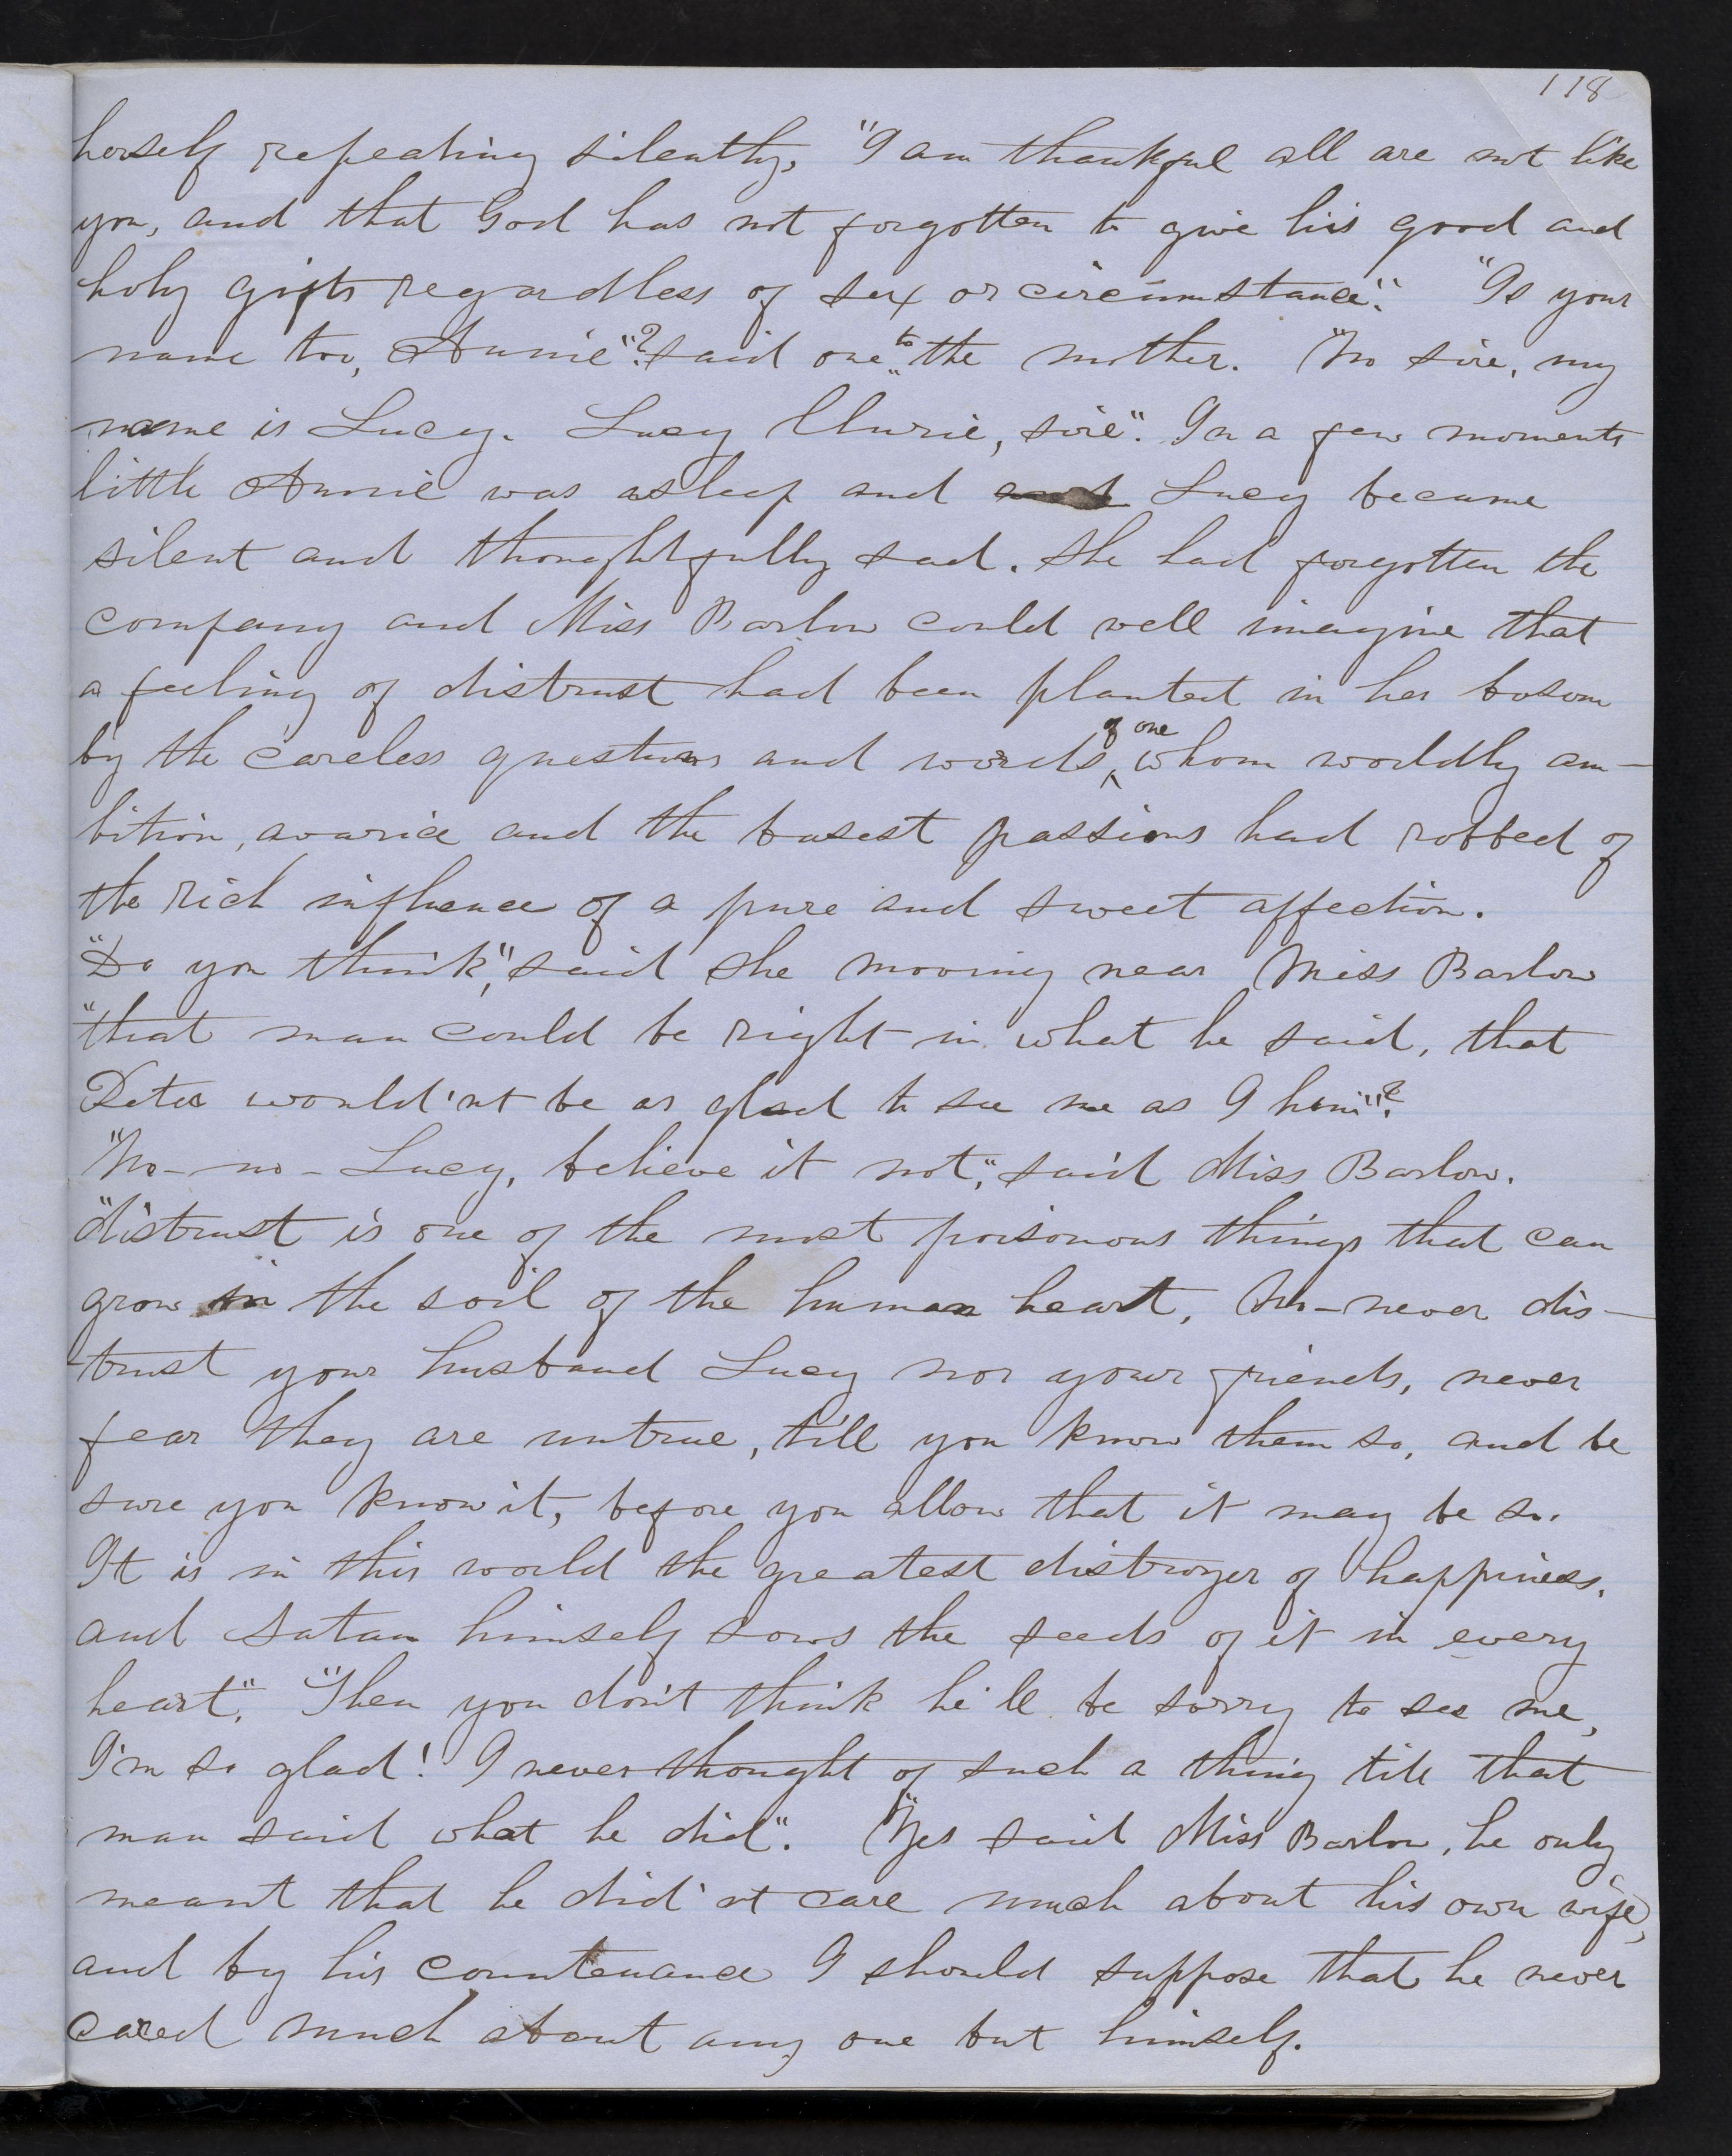 118
herself repeating silently, "I am thankful all are not like
you, and that God has not forgotten to give his good and
holy gifts regardless of sex or circumstance". "Is your
name too, Annie"? said one to the mother. "No sire, my
name is Lucy. Lucy Clurie, sire". In a few moments
little Annie was asleep and and Lucy became
silent and thoughtfully sad. She had forgotten the
company and Miss Barlow could well imagine that
a feeling of distrust had been planted in her bosom
by the careless questions and words of one whom worldly am-
bition, avarice and the basest passions had robbed of
the rich influence of a pure and sweet affection.
"Do you think", said she mooving near Miss Barlow
"that man could be right in what he said, that
Peter would'nt be as glad to see me as I him"?
"No - no - Lucy, believe it not", said Miss Barlow.
"distrust is one of the most poisonous things that can
grow in the soil of the human heart, No - never dis-
trust your husband Lucy nor your friends, never
fear they are untrue, till you know them so, and be
sure you know it, before you allow that it may be so.
It is in this world the greatest distroyer of happiness,
and Satan himself sows the seeds of it in every
heart". "Then you don't think he'll be sorry to see me,
I'm so glad! I never thought of such a thing till that
man said what he did". "Yes said Miss Barlow, he only
meant that he did'nt care much about his own wife,
and by his countenance I should suppose that he never
cared much about any one but himself.